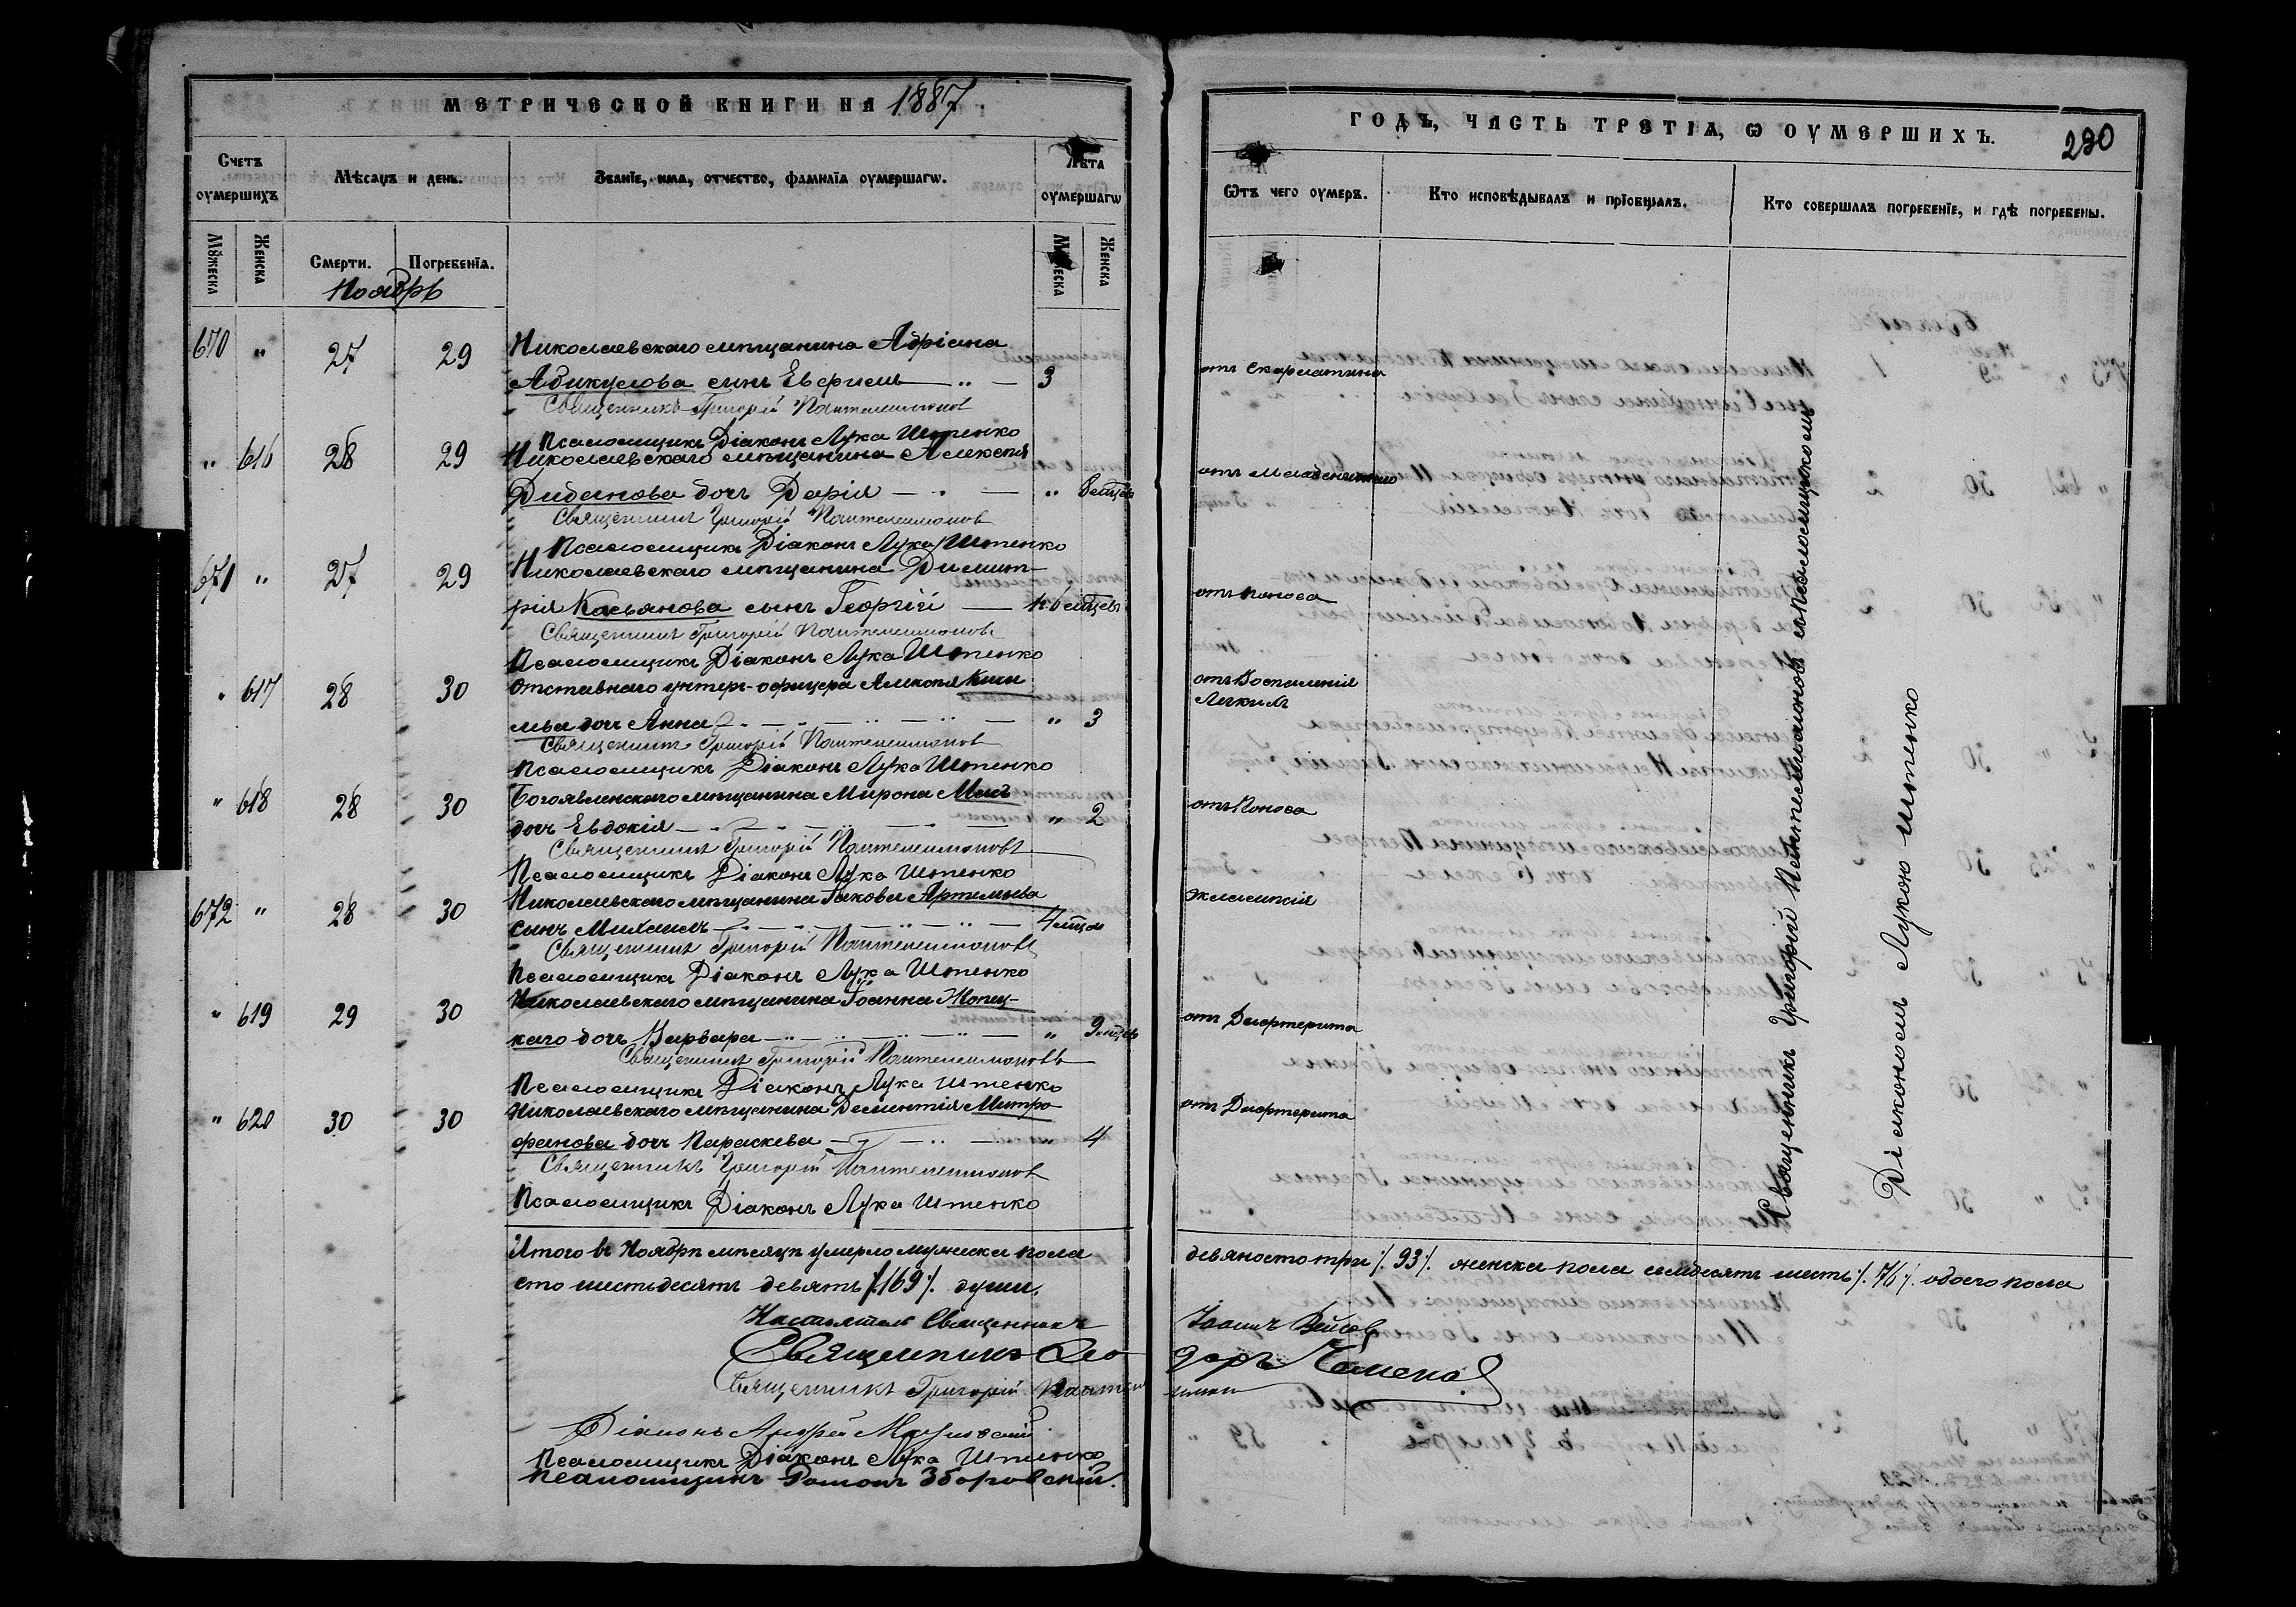 МЕТРИЧЕСКОЙ КНИГИ НА 1887
Счетъ оумершихъ
Мѣсяцъ и день.
Званїе, имя, отчество, фамилїя оумершагѡ.
Лѣта оумершагѡ
Мꙋжеска
Женска
Смерти.
Погребенїя.
Женска
Ноябрь
670 " 27 29 Николаевскаго мѣщанина Адріана
сынъ Евфимъ 3
Священникъ Григорій Пантелеимоновъ
Псаломщикъ Діаконъ Лука Штенко
" 616 28 29 Николаевскаго мѣщанина Алексѣя
Дибанова дочь Дарія " 8 мѣцев
Священникъ Григорій Пантелеимоновъ
Псаломщикъ Діаконъ Лука Штенко
671 " 27 29 Николаевскаго мѣщанина Димит-
рія Касьянова сынъ Георгій мѣсцевъ
Священникъ Григорій Пантелеимоновъ
Псаломщикъ Діаконъ Лука Штенко
" 617 28 30 Отставнаго унтеръ-офицера Алексѣя
дочь Анна " 3
Священникъ Григорій Пантелеимоновъ
Псаломщикъ Діаконъ Лука Штенко
" 618 28 30 Богоявленскаго мѣщанина Мирона
дочь Евдокія " 2
Священникъ Григорій Пантелеимоновъ
Псаломщикъ Діаконъ Лука Штенко
672 " 28 30 Николаевскаго мѣщанина Іакова Артемьева
сынъ Михаилъ 4 мѣцов
Священникъ Григорій Пантелеимоновъ
Псаломщикъ Діаконъ Лука Штенко
" 619 29 30 Николаевскаго мѣщанина Іоанна
каго дочь Варвара " 9 мѣцев
Священникъ Григорій Пантелеимоновъ
Псаломщикъ Діаконъ Лука Штенко
" 620 30 30 Николаевскаго мѣщанина Дементія Митро
фанова дочь Параскева " 4
Священникъ Григорій Пантелеимоновъ
Псаломщикъ Діаконъ Лука Штенко
Итого въ Ноябрѣ мѣсяцѣ умерло мужеска пола
сто шестьдесятъ девять /.169/. душъ.
Настоятель Священникъ
Священникъ Ѳео
Священникъ Григорій Пантеле
Діаконъ Андрей
Псаломщикъ Діаконъ Лука Штенко
Псаломщикъ Романъ Зборовскій.
ГОДЪ, ЧАСТЬ ТРЕТІѦ, Ѡ ОУМЕРШИХЪ.
230
Ѿтъ чего оумеръ.
Кто исповѣдывалъ и прїобщалъ.
Кто совершалъ погребенїе, и гдѣ погребены.
отъ Скарлатина
отъ Младенческаго
отъ Поноса
отъ Воспаленія
Легкихъ
отъ Поноса
Эклампсія
отъ Дифтерита
отъ Дифтерита
Священникъ Григорій Пантелеимоновъ съ Псаломщикомъ
Діакономъ Лукою Штенко
девяносто три /. 93 /. женска пола семдесятъ шесть /. 76 /. обоего пола
Іоаннъ
доръ